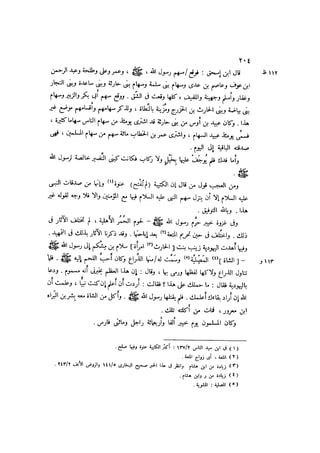 ٢٠٤
قال ابن إسحق : فوقع / سهم رسول الله ، ﷺ ، وعمر وعلى وطلحة وعبد الرحمن
ابن عوف وعاصم بن عدى وسهام بنى سلمة وسهام بنى حارثة وبنى ساعدة وبنى النجار
وغفار وأسلم وجهينة واللفيف ، كلها وقعت فى الشق . ووقع سهم أبى بكر والزبير وسهام
بنى بياضة وبنى الحارث بن الخزرج ومزينة بالنطاة ، ولذكر سهامهم وأقسامهم موضع غير
هذا . وكان عبيد بن أوس من بنى حارثة قد اشترى يومئذ من سهام الناس سهاما كثيرة ،
فسمى يومئذ عبيد السهام ، واشترى عمر بن الخطاب مائة سهم من سهام المسلمين ، فهى
صدقته الباقية إلى اليوم .
وأما فدك فلم يوجف عليها بخيل ولا ركاب فكانت كبنى النضير خالصة لرسول الله
ﷺ .
ومن العجب قول من قال إن الكتيبة (لم تفتح) عنوة(١) وإنها من صدقات النبى
عليه السلام إلا أن ينزل سهم النبى عليه السلام فيها مع المؤمنين وإلا فلا وجه لقوله غير
هذا . وبالله التوفيق .
وفى غزوة خيبر حرم رسول الله ﷺ – لحوم الحمر الأهلية ، لم تختلف الآثار فى
ذلك . واختلف فى حين تحريم المتعة(٢) بعد إباحتها . وقد ذكرنا الآثار بذلك فى التمهيد .
وفيها أهدت اليهودية زينب بنت [ الحارث(٣) امرأة] سلام بن مشكم إلى رسول الله ﷺ
– [ الشاة ](٤) المصلية(٥) وسمت له / منها الذراع وكان أحب اللحم إليه ﷺ . فلما
تناول الذراع ولاكها لفظها ورمى بها ، وقال : إن هذا العظم يخبرنى أنه مسموم . ودعا
باليهودية فقال : ما حملك على هذا ؟ فقالت : أردت أن أعلم إن كنت نبيا ، وعلمت أن
الله إن أراد بقاءك أعلمك . فلم يقتلها رسول الله ﷺ . وأكل من الشاة معه بشر بن البراء
ابن معرور ، فمات من أكلته تلك .
وكان المسلمون يوم خيبر ألفا وأربعمائة راجل ومائتى فارس .
١١٢ ط
١١٣ و
(١) فى ابن سيد الناس ١٣٧/٢ : أكثر الكتيبة عنوة وفيها صلح .
(٢) المتعة : أى زواج المتعة .
(٣) زيادة من ابن هشام وانظر فى هذا الخبر صحيح البخارى ١٤١/٥ والروض الأنف ٢٤٣/٢ .
(٤) زيادة من ر وابن هشام .
(٥) المصلية : المشوية .